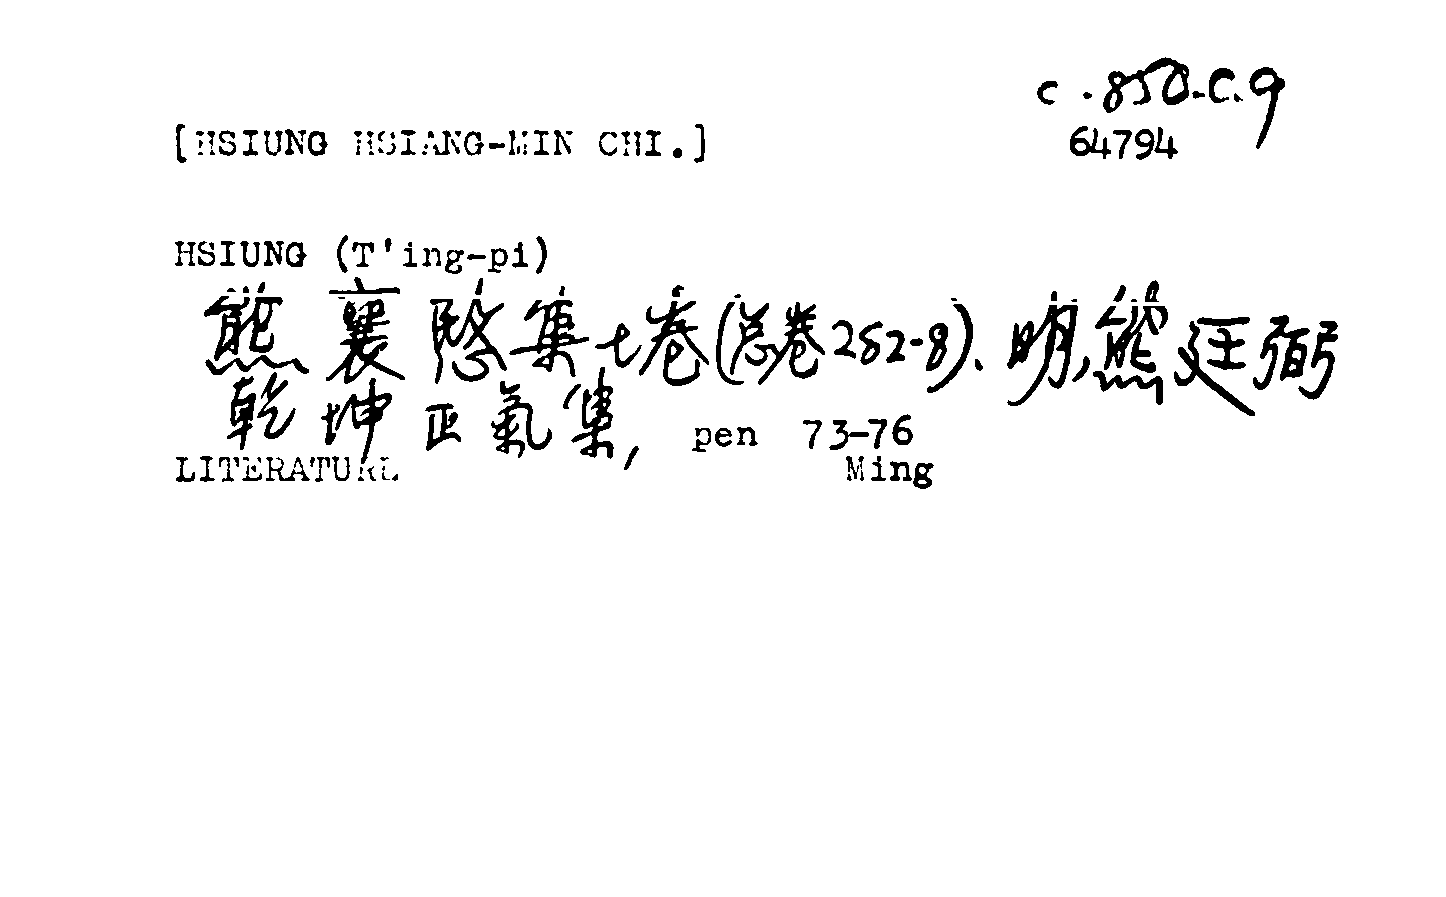 c.850.c.9
[HSIUNG HSIANG-MIN CHI.]
64794
HSIUNG (T'ing-pi)
熊襄愍集七卷(总卷282-8)、明,熊廷弼
乾坤正氣集, pen 73-76
LITERATURE Ming